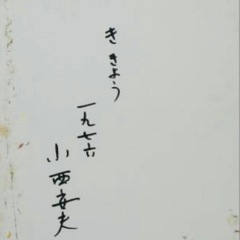 ききょう
一九七六
小西安夫